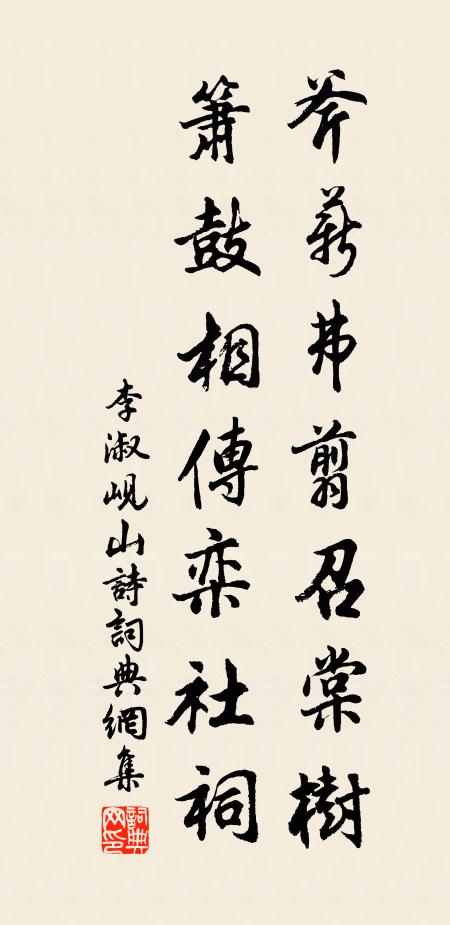 斧薪弗翦召棠樹
簫鼓相傳栾社祠
李淑峴山詩詞典網集
詞典网印